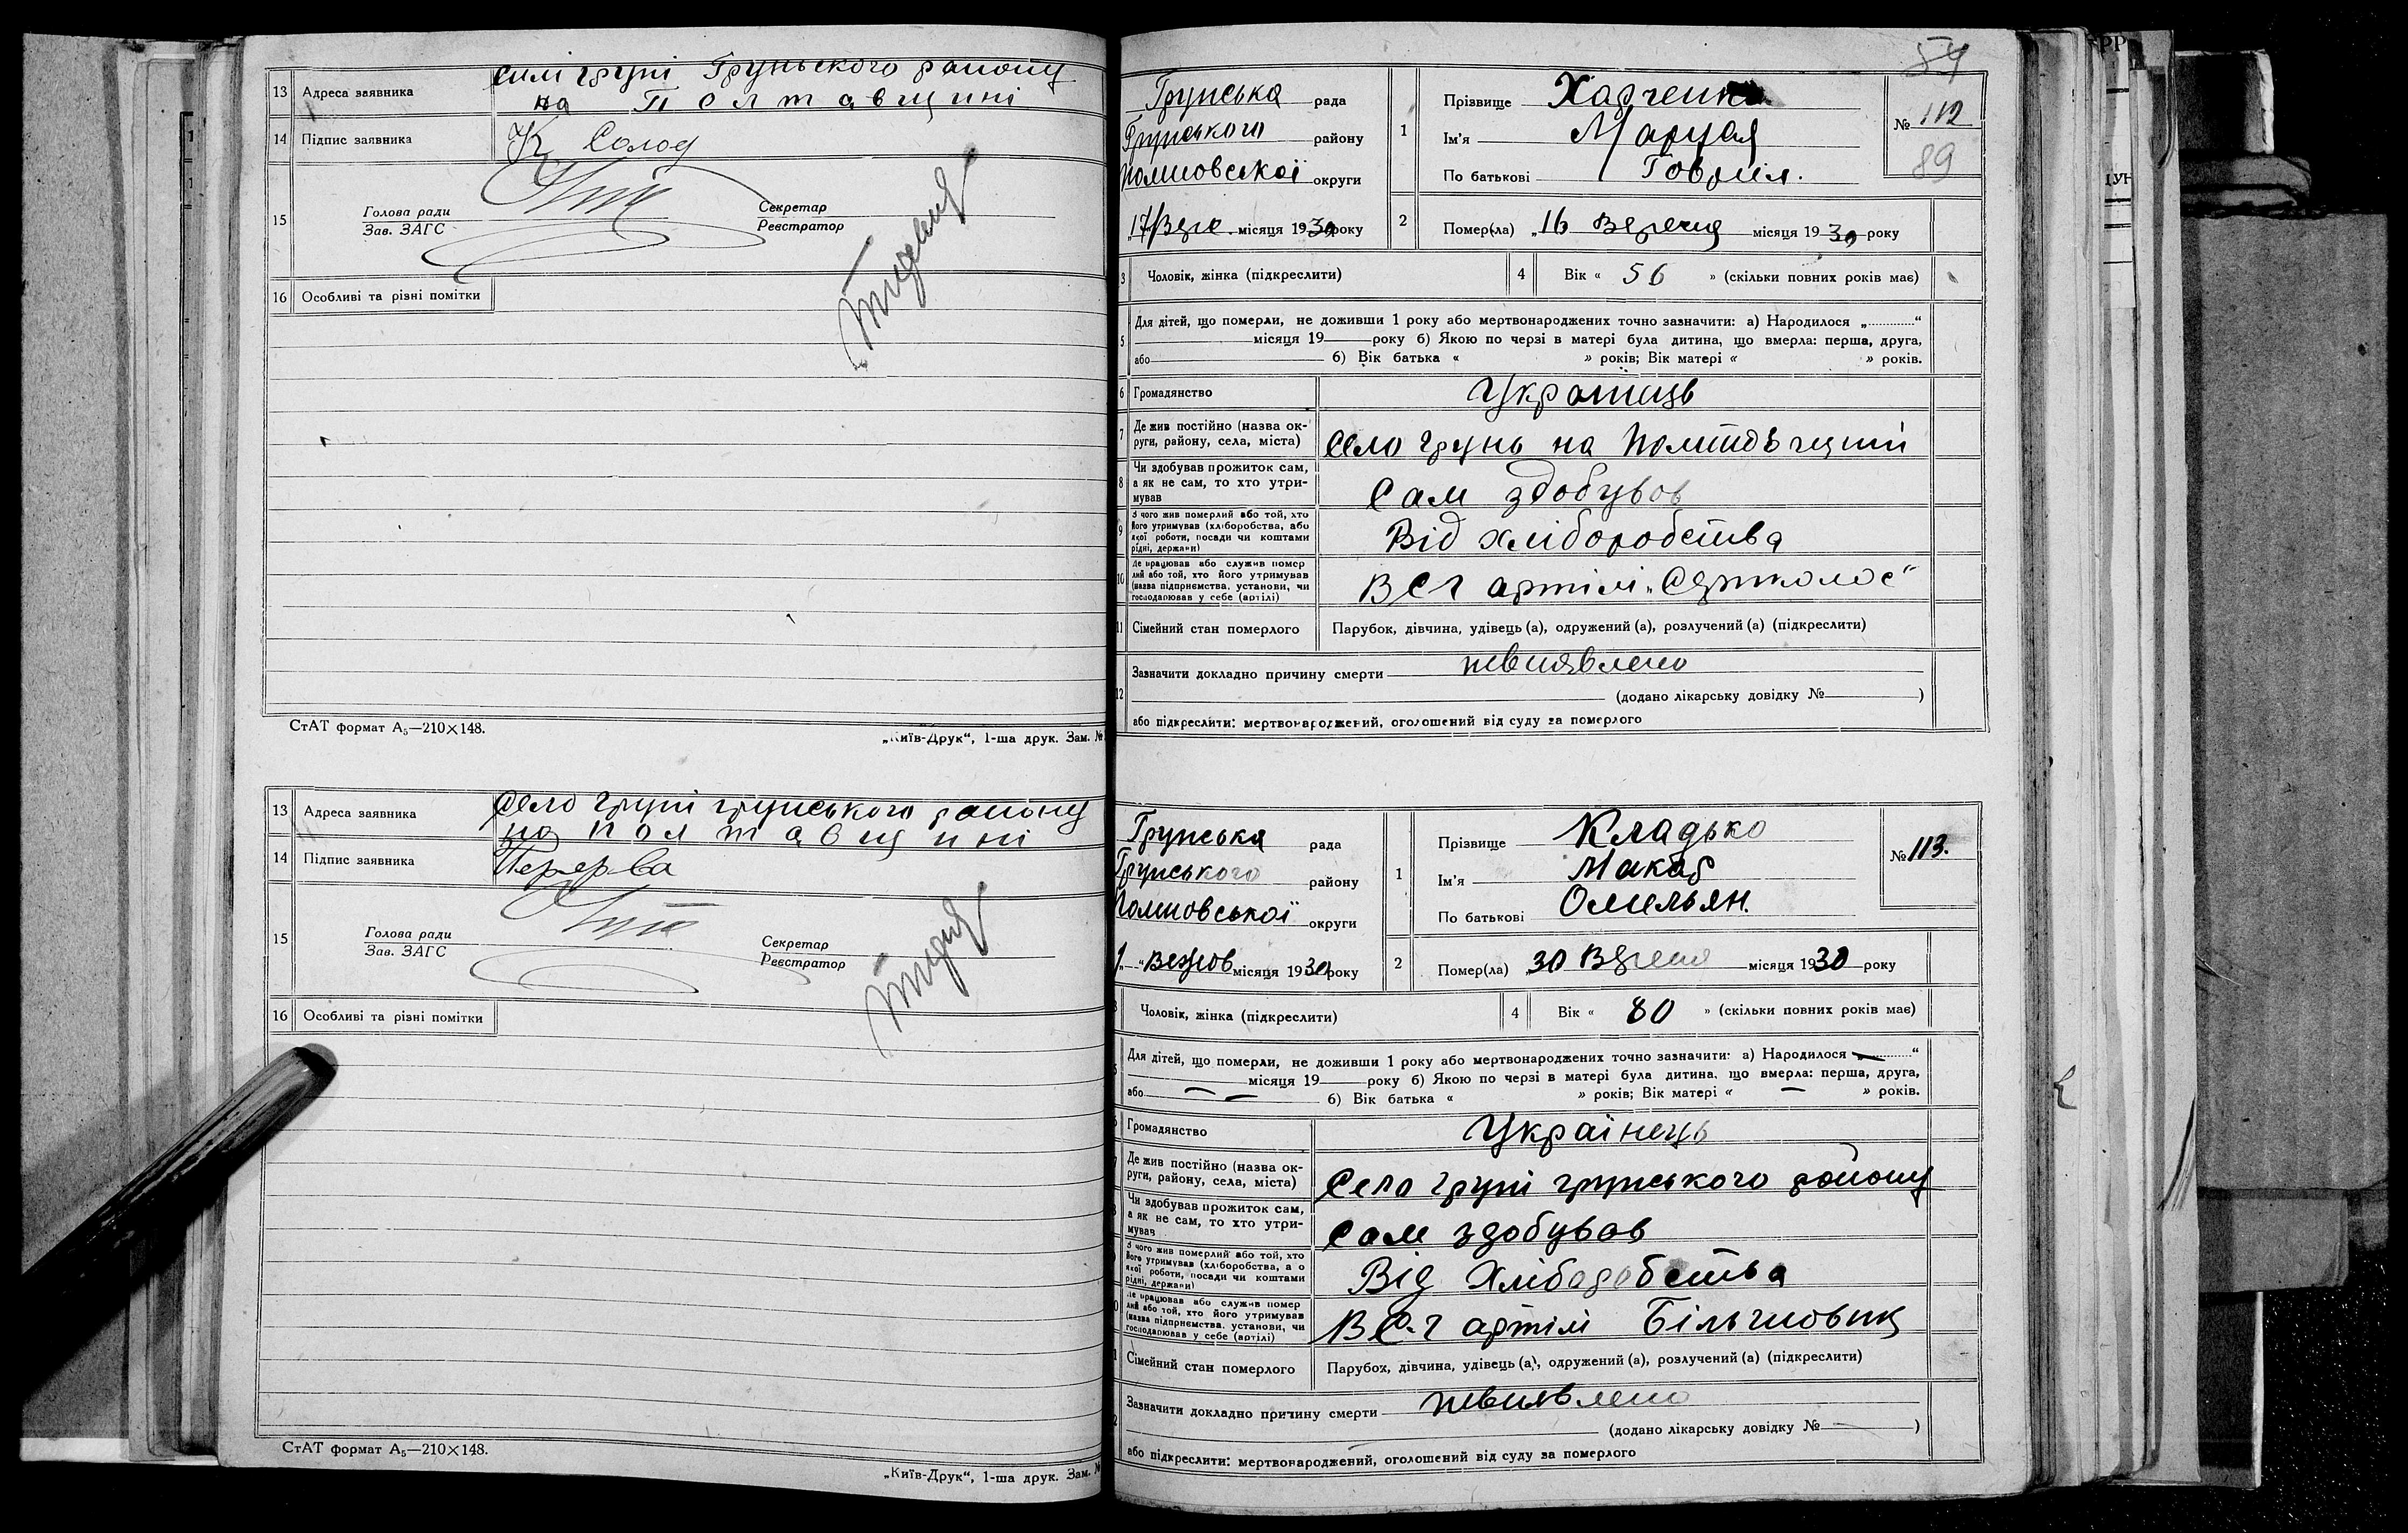 13 Адреса заявника
селі груні Груньского району
на Полтавщині
14 Підпис заявника К Солод
15 Голова ради
Зав. ЗАГС
Секретар
Реєстратор
16 Особливі та різні помітки
СтАТ формат А₅—210×148.
„Київ-Друк“, 1-ша друк. Зам. №
13 Адреса заявника
Село груні грунського району
на полтавщині
14 Підпис заявника Перерва
15 Голова ради
Зав. ЗАГС
Секретар
Реєстратор
16 Особливі та різні помітки
СтАТ формат А₅—210×148.
„Київ-Друк“, 1-ша друк. Зам. №
54
Грунська рада
Грунського району
округи
„17 місяця 1930 року
1 Прізвище Харченко
Ім'я
По батькові Гаврил.
№ 112
89
2 Помер(ла) „16 Вересня місяця 1930 року
3 Чоловік, жінка (підкреслити) 4 Вік « 56 » (скільки повних років має)
5 Для дітей, що померли, не доживши 1 року або мертвонароджених точно зазначити: а) Народилося „............“
місяця 19 року б) Якою по черзі в матері була дитина, що вмерла: перша, друга,
або б) Вік батька « » років; Вік матері « » років.
6 Громадянство Українець
7 Де жив постійно (назва ок-
руги, району, села, міста) Село грунь на Полтавщині
8 Чи здобував прожиток сам,
а як не сам, то хто утри-
мував Сам здобував
9 З чого жив померлий або той, хто
його утримував (хліборобства, або
якої роботи, посади чи коштами
рідні, держави) Від хліборобства
10 Де працював або служив помер
лий або той, хто його утримував
(назва підприємства, установи, чи
господарював у себе (артілі) В СГ артілі „Серп колос“
11 Сімейний стан померлого Парубок, дівчина, удівець (а), одружений (а), розлучений (а) (підкреслити)
12 Зазначити докладно причину смерти невиявлено
(додано лікарську довідку № )
або підкреслити: мертвонароджений, оголошений від суду за померлого
Грунська рада
Грунського району
округи
місяця 1930 року
1 Прізвище Кладько
Ім'я Макар
По батькові Омельян.
№ 113.
2 Помер(ла) „30 місяця 1930 року
Чоловік, жінка (підкреслити) 4 Вік « 80 » (скільки повних років має)
Для дітей, що померли, не доживши 1 року або мертвонароджених точно зазначити: а) Народилося „............“
місяця 19 року б) Якою по черзі в матері була дитина, що вмерла: перша, друга,
або б) Вік батька « » років; Вік матері « — » років.
Громадянство Українець
Де жив постійно (назва ок-
руги, району, села, міста) Село груні грунського району
Чи здобував прожиток сам,
а як не сам, то хто утри-
мував Сам здобував
З чого жив померлий або той, хто
його утримував (хліборобства, або
якої роботи, посади чи коштами
рідні, держави) Від Хліборобства
Де працював або служив помер
лий або той, хто його утримував
(назва підприємства, установи, чи
господарював у себе (артілі) В С.г артілі Більшовик
Сімейний стан померлого Парубок, дівчина, удівець (а), одружений (а), розлучений (а) (підкреслити)
Зазначити докладно причину смерти невиявлено
(додано лікарську довідку № )
або підкреслити: мертвонароджений, оголошений від суду за померлого